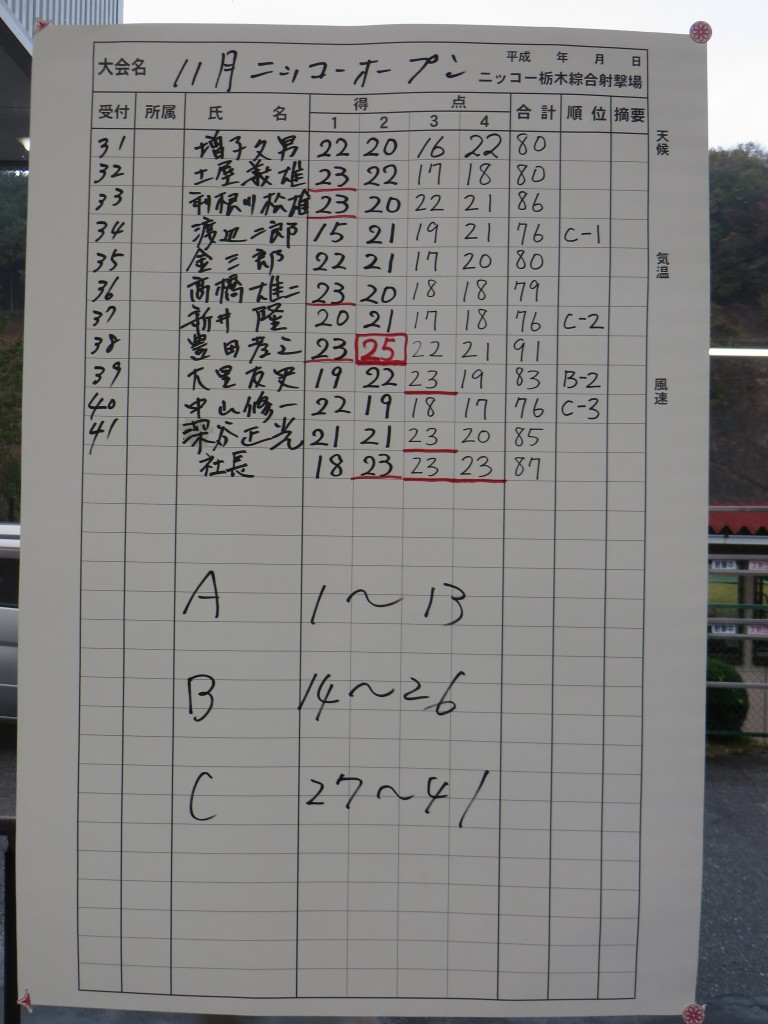 平成 年 月 日
大会名 11月ニッコーオープン ニッコー栃木綜合射撃場
受付 所属 氏 名 得 点 合計 順位 摘要
1 2 3 4
天候
31 増子久男 22 20 16 22 80
32 土屋義雄 23 22 17 18 80
33 利根川松雄 23 20 22 21 86
34 渡辺二郎 15 21 19 21 76 C-1
35 金三郎 22 21 17 20 80
気温
36 高橋雄二 23 20 18 18 79
37 新井隆 20 21 17 18 76 C-2
38 豊田孝之 23 25 22 21 91
39 大里友史 19 22 23 19 83 B-2
風速
40 中山修一 22 19 18 17 76 C-3
41 深谷正光 21 21 23 20 85
社長 18 23 23 23 87
A 1～13
B 14～26
C 27～41